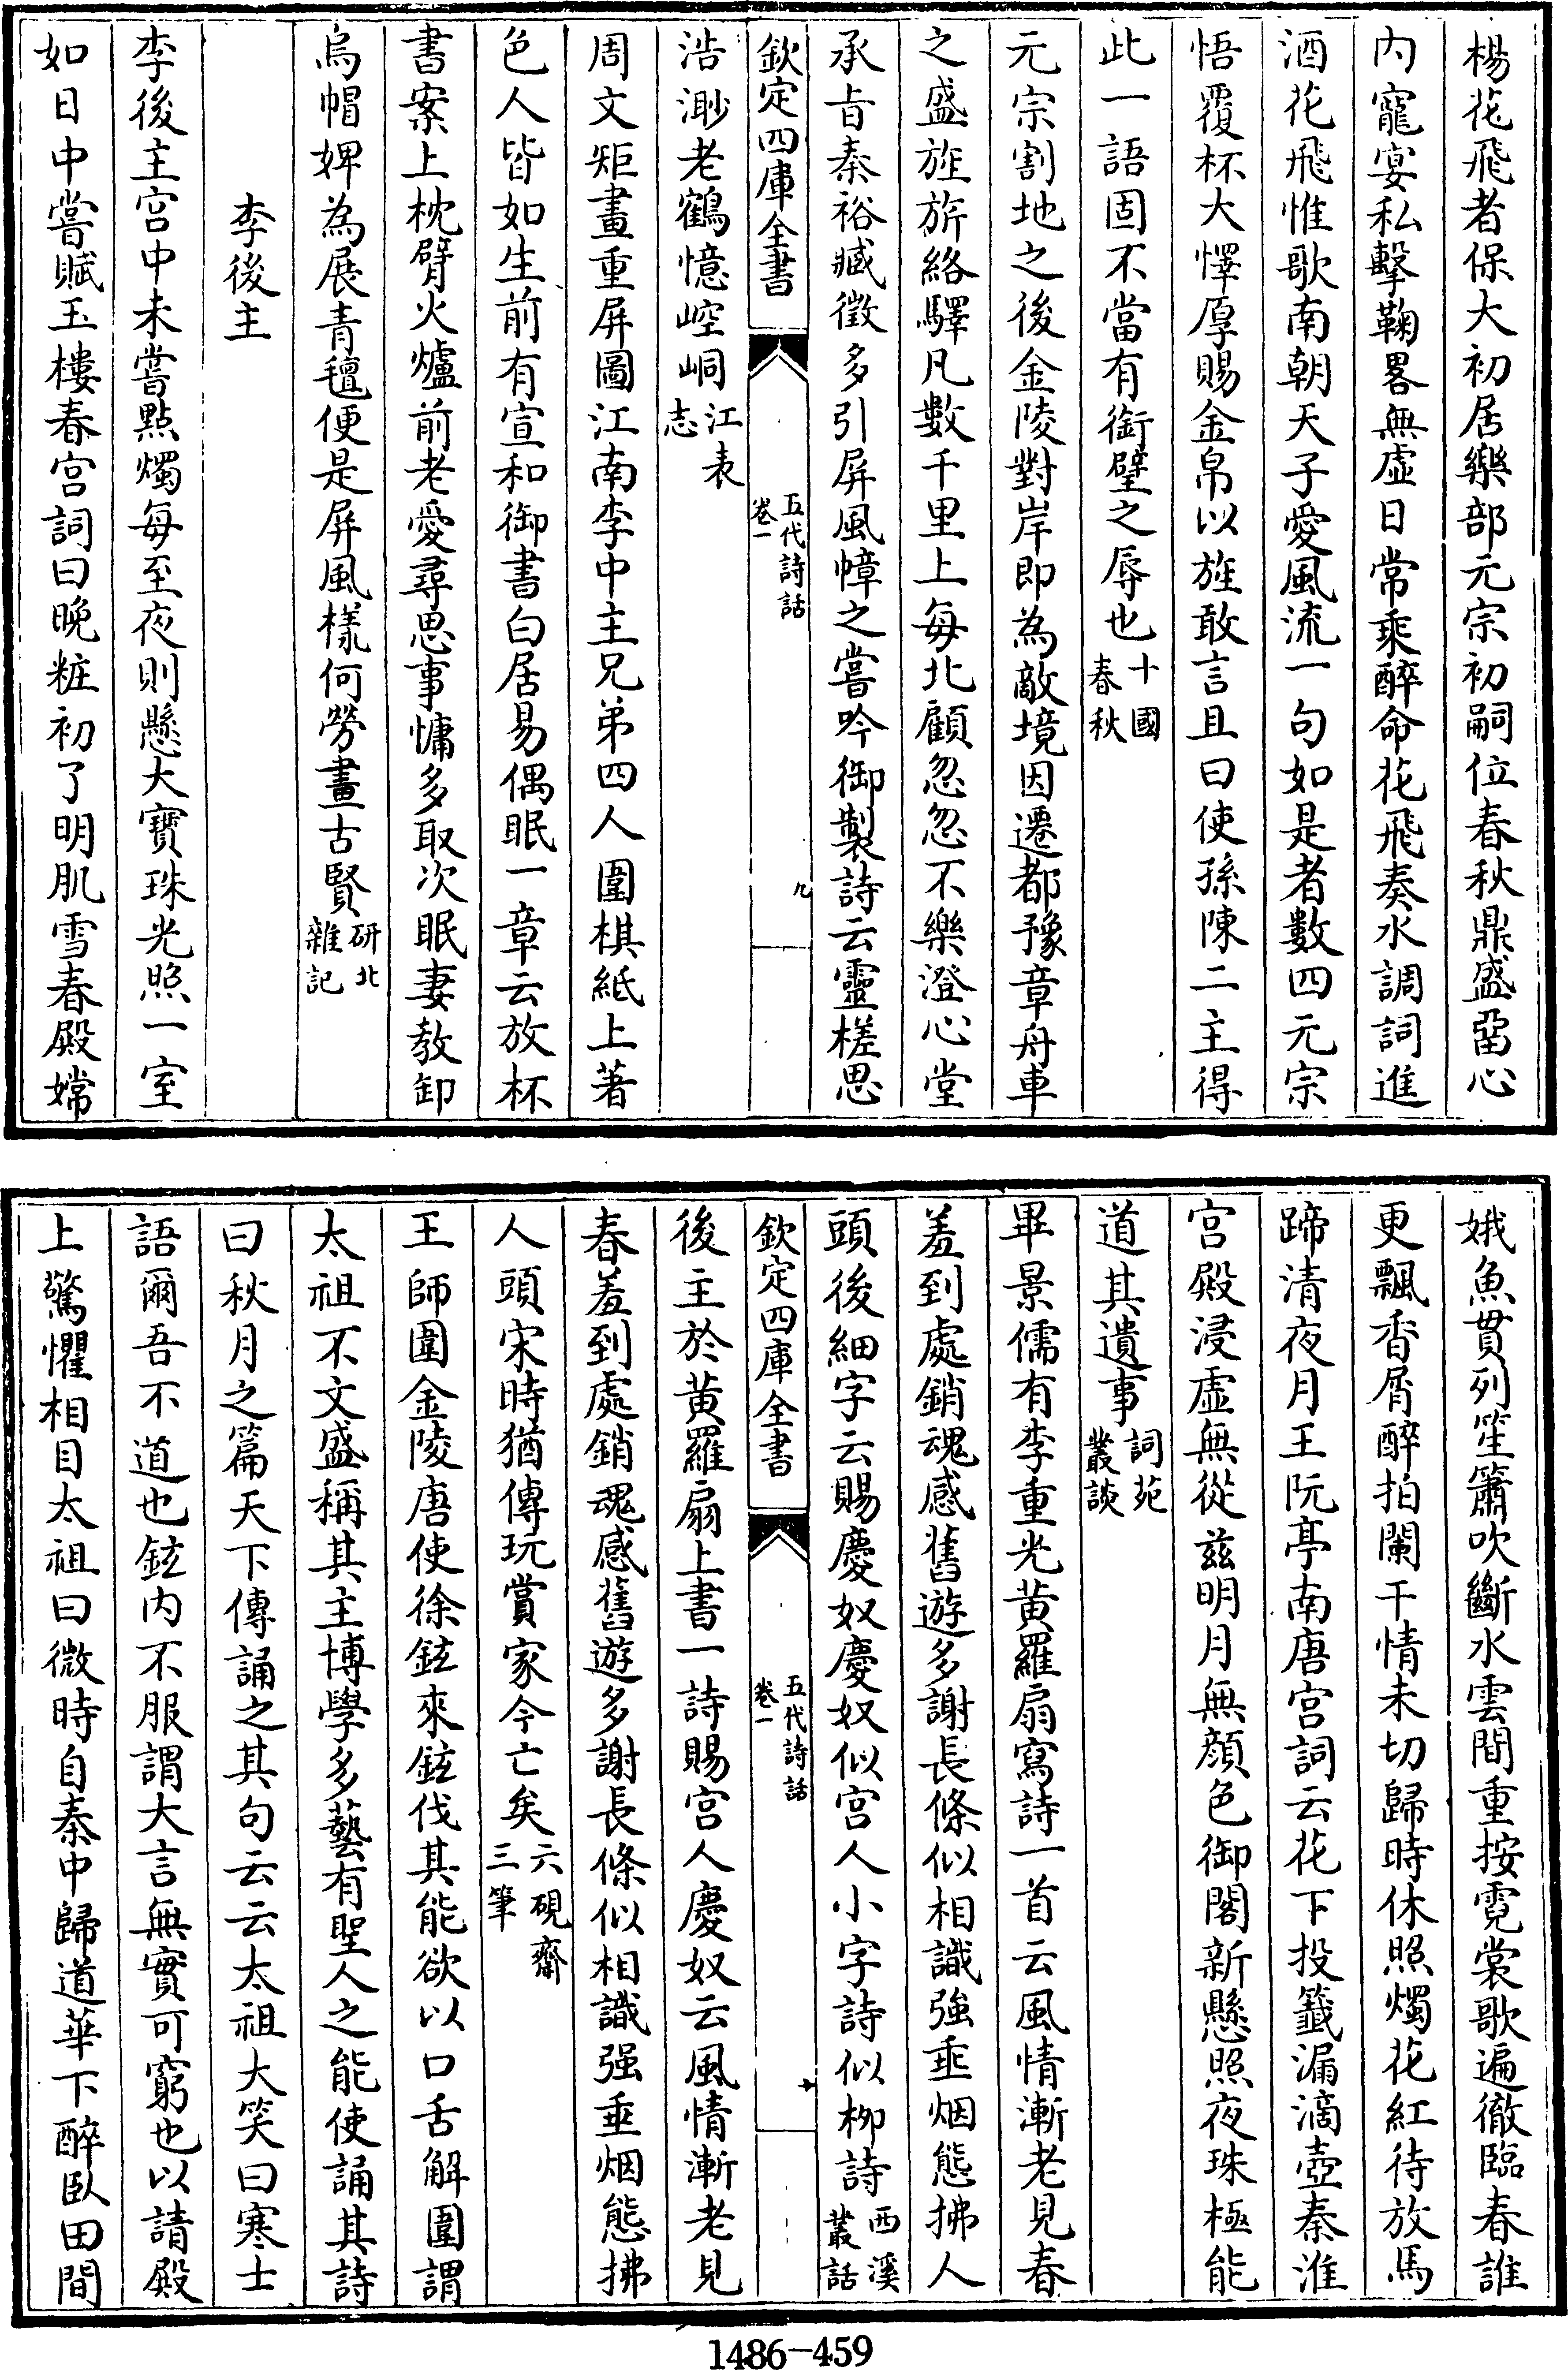 楊花飛者保大初居樂部元宗初嗣位春秋鼎盛畱心
内寵宴私擊鞠畧無虚日常乘醉命花飛奏水調詞進
酒花飛惟歌南朝天子愛風流一句如是者數四元宗
悟覆杯大懌厚賜金帛以旌敢言且曰使孫陳二主得
此一語固不當有銜璧之辱也十國春秋
元宗割地之後金陵對岸即為敵境因遷都豫章舟車
之盛旌旂絡驛凡數千里上每北顧忽忽不樂澄心堂
承㫖秦裕藏徵多引屏風幛之嘗吟御製詩云靈槎思
欽定四庫全書
五代詩話
卷一
九
浩渺老鶴憶崆峒江表志
周文矩畫重屏圖江南李中主兄弟四人圍棋紙上著
色人皆如生前有宣和御書白居易偶眠一章云放杯
書案上枕臂火爐前老愛尋思事慵多取次眠妻教卸
烏帽婢為展青氊便是屏風樣何勞畫古賢研北雜記
李後主
李後主宫中未嘗點燭每至夜則懸大寶珠光照一室
如日中嘗賦玉樓春宫詞曰晚粧初了明肌雪春殿嫦
娥魚貫列笙簫吹斷水雲間重按霓裳歌遍徹臨春誰
更飄香屑醉拍闌干情未切歸時休照燭花紅待放馬
蹄清夜月王阮亭南唐宫詞云花下投籖漏滴壺秦淮
宫殿浸虚無從兹明月無顔色御閣新懸照夜珠極能
道其遺事詞苑叢談
畢景儒有李重光黄羅扇寫詩一首云風情漸老見春
羞到處銷魂感舊遊多謝長條似相識強垂烟態拂人
頭後細字云賜慶奴慶奴似宫人小字詩似栁詩西溪叢話
欽定四庫全書
五代詩話
卷一
十
後主於黄羅扇上書一詩賜宫人慶奴云風情漸老見
春羞到處銷魂感舊遊多謝長條似相識强垂烟態拂
人頭宋時猶傳玩賞家今亡矣六硯齋三筆
王師圍金陵唐使徐鉉來鉉伐其能欲以口舌解圍謂
太祖不文盛稱其主博學多藝有聖人之能使誦其詩
曰秋月之篇天下傳誦之其句云云太祖大笑曰寒士
語爾吾不道也鉉内不服謂大言無實可窮也以請殿
上驚懼相目太祖曰微時自秦中歸道華下醉臥田間
1486-459